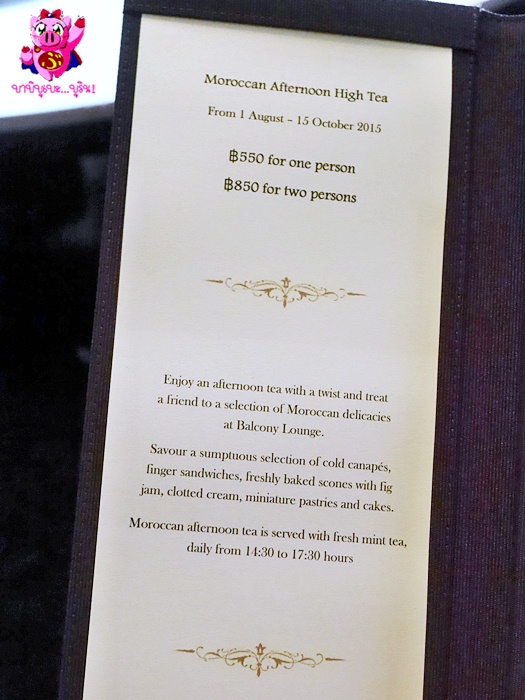 บาบิบูเบะ...บูริน!
Moroccan Afternoon High Tea
From 1 August – 15 October 2015
฿550 for one person
฿850 for two persons
Enjoy an afternoon tea with a twist and treat
a friend to a selection of Moroccan delicacies
at Balcony Lounge.
Savour a sumptuous selection of cold canapés,
finger sandwiches, freshly baked scones with fig
jam, clotted cream, miniature pastries and cakes.
Moroccan afternoon tea is served with fresh mint tea,
daily from 14:30 to 17:30 hours